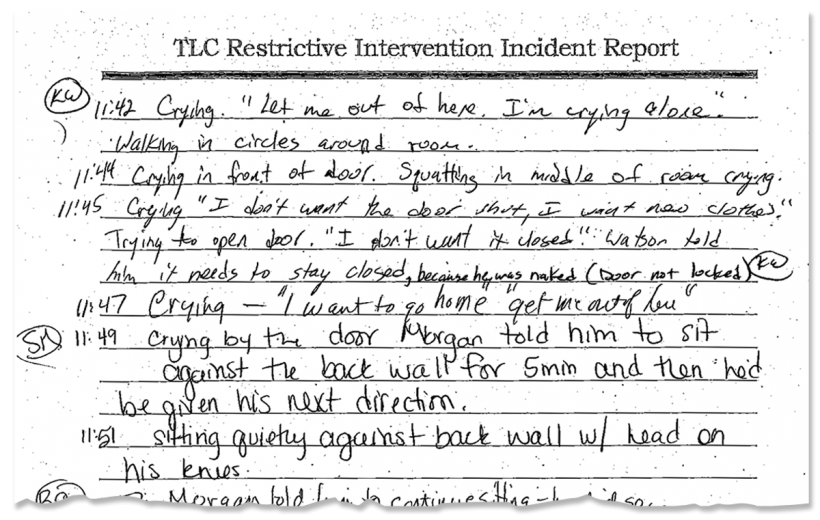 TLC Restrictive Intervention Incident Report
KW 11:42 Crying. "Let me out of here. I'm crying alone."
Walking in circles around room.
11:44 Crying in front of door. Squatting in middle of room crying.
11:45 Crying "I don't want the door shut, I want new clothes."
Trying to open door. "I don't want it closed!" Watson told
him it needs to stay closed, because he was naked (Door not locked) KW
11:47 Crying — "I want to go home" "get me out of here"
SM 11:49 Crying by the door Morgan told him to sit
against the back wall for 5min and then he'd
be given his next direction.
11:51 sitting quietly against back wall w/ head on
his knees
Morgan told him to continue sitting